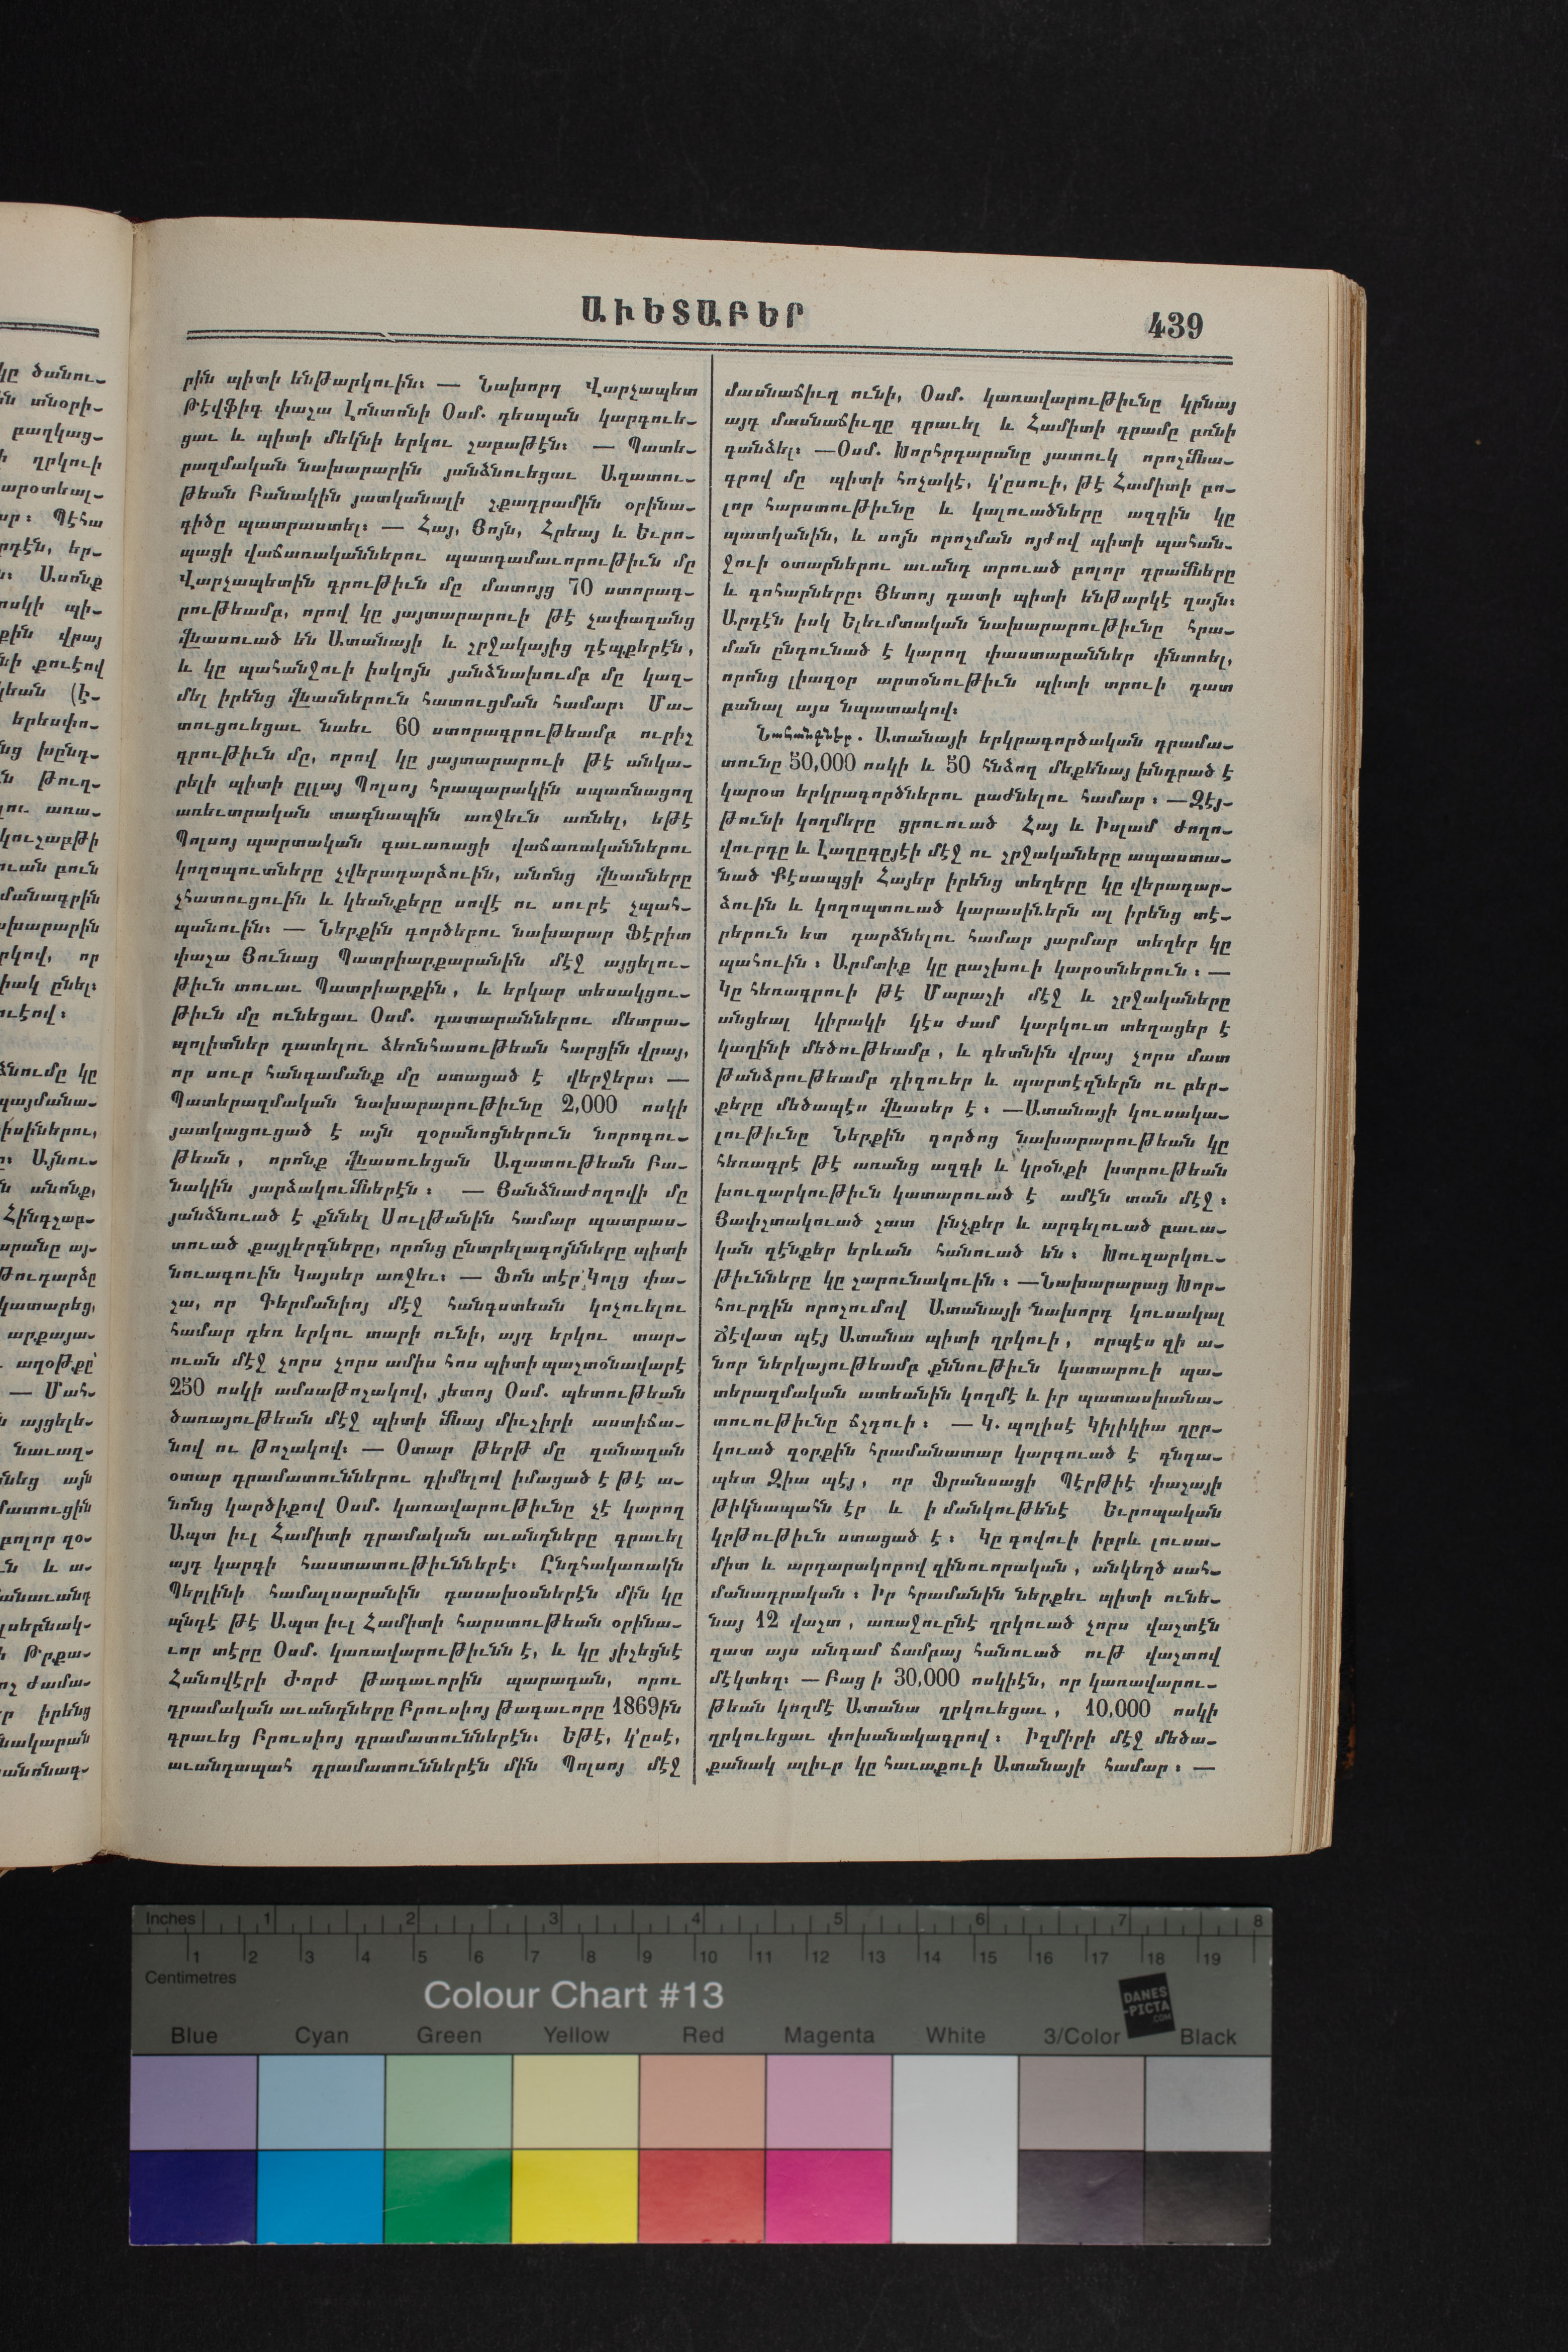 ԱՒԵՏԱԲԵՐ
439
րին պիտի ենթարկուին։ — Նախորդ Վարչապետ
Թէվֆիդ փաշա Լոնտոնի Օսմ. դեսպան կարգուե-
ցաւ և պիտի մեկնի երկու շաբաթէն։ — Պատե-
րազմական նախարարին յանձնուեցաւ Ազատու-
թեան Բանակին յատկանալի շքադրամին օրինա-
գիծը պատրաստել։ — Հայ, Յոյն, Հրեայ և Եւրո-
պացի վաճառականներու պատգամաւորութիւն մը
Վարչապետին գրութիւն մը մատոյց 70 ստորագ-
րութեամբ, որով կը յայտարարուի թէ չափազանց
վնասուած են Ատանայի և շրջակայից դէպքերէն,
և կը պահանջուի իսկոյն յանձնախումբ մը կազ-
մել իրենց վնասներուն հատուցման համար։ Մա-
տուցուեցաւ նաեւ 60 ստորագրութեամբ ուրիշ
գրութիւն մը, որով կը յայտարարուի թէ անկա-
րելի պիտի ըլլայ Պոլսոյ հրապարակին սպառնացող
առեւտրական տագնապին առջեւն առնել, եթէ
Պոլսոյ պարտական գաւառացի վաճառականներու
կողոպուտները չվերադարձուին, անոնց վնասները
չհատուցուին և կեանքերը սովէ ու սուրէ չպահ-
պանուին։ — Ներքին գործերու նախարար Ֆէրիտ
փաշա Յունաց Պատրիարքարանին մէջ այցելու-
թիւն տուաւ Պատրիարքին, և երկար տեսակցու-
թիւն մը ունեցաւ Օսմ. դատարաններու մետրա-
պոլիտներ դատելու ձեռնհասութեան հարցին վրայ,
որ սուր հանգամանք մը ստացած է վերջերս։ —
Պատերազմական նախարարութիւնը 2,000 ոսկի
յատկացուցած է այն զօրանոցներուն նորոգու-
թեան, որոնք վնասուեցան Ազատութեան Բա-
նակին յարձակումներէն։ — Յանձնաժողովի մը
յանձնուած է քննել Սուլթանին համար պատրաս-
տուած քայլերգները, որոնց ընտրելագոյնները պիտի
նուագուին Կայսեր առջեւ։ — Ֆոն տէր Կոլց փա-
շա, որ Գերմանիոյ մէջ հանգստեան կոչուելու
համար դեռ երկու տարի ունի, այդ երկու տար-
ուան մէջ չորս չորս ամիս հոս պիտի պաշտօնավարէ
250 ոսկի ամսաթոշակով, յետոյ Օսմ. պետութեան
ծառայութեան մէջ պիտի մնայ միւշիրի աստիճա-
նով ու թոշակով։ — Օտար թերթ մը զանազան
օտար դրամատուններու դիմելով իմացած է թէ ա-
նոնց կարծիքով Օսմ. կառավարութիւնը չէ կարող
Ապտ իւլ Համիտի դրամական աւանդները գրաւել
այդ կարգի հաստատութիւններէ։ Ընդհակառակն
Պերլինի համալսարանին դասախօսներէն մին կը
պնդէ թէ Ապտ իւլ Համիտի հարստութեան օրինա-
ւոր տէրը Օսմ. կառավարութիւնն է, և կը յիշեցնէ
Հանովէրի Ժորժ թագաւորին պարագան, որու
դրամական աւանդները Բրուսիոյ թագաւորը 1869ին
գրաւեց Բրուսիոյ դրամատուններէն։ Եթէ, կ'ըսէ,
աւանդապահ դրամատուններէն մին Պոլսոյ մէջ
մասնաճիւղ ունի, Օսմ. կառավարութիւնը կրնայ
այդ մասնաճիւղը գրաւել և Համիտի դրամը բռնի
գանձել։ —Օսմ. Խորհրդարանը յատուկ որոշմնա-
գրով մը պիտի հռչակէ, կ'ըսուի, թէ Համիտի բո-
լոր հարստութիւնը և կալուածները ազգին կը
պատկանին, և սոյն որոշման ոյժով պիտի պահան-
ջուի օտարներու աւանդ տրուած բոլոր դրամները
և գոհարները։ Յետոյ դատի պիտի ենթարկէ զայն։
Արդէն իսկ Ելեւմտական նախարարութիւնը հրա-
ման ընդունած է կարող փաստաբաններ փնտռել,
որոնց լիազօր արտօնութիւն պիտի տրուի դատ
բանալ այս նպատակով։
Նահանգներ. Ատանայի երկրագործական դրամա-
տունը 50,000 ոսկի և 50 հնձող մեքենայ խնդրած է
կարօտ երկրագործներու բաժնելու համար։ —Զէյ-
թունի կողմերը ցրուուած Հայ և Իսլամ ժողո-
վուրդը և Լաղըդըյէի մէջ ու շրջակաները ապաստա-
նած Քէսապցի Հայեր իրենց տեղերը կը վերադար-
ձուին և կողոպտուած կարասիներն ալ իրենց տէ-
րերուն ետ դարձնելու համար յարմար տեղեր կը
պահուին։ Արմտիք կը բաշխուի կարօտներուն։ —
Կը հեռագրուի թէ Մարաշի մէջ և շրջակաները
անցեալ կիրակի կէս ժամ կարկուտ տեղացեր է
կաղինի մեծութեամբ, և գետնին վրայ չորս մատ
թանձրութեամբ դիզուեր և պարտէզներն ու բեր-
քերը մեծապէս վնասեր է։ —Ատանայի կուսակա-
լութիւնը Ներքին գործոց նախարարութեան կը
հեռագրէ թէ առանց ազգի և կրօնքի խտրութեան
խուզարկութիւն կատարուած է ամէն տան մէջ։
Յափշտակուած շատ ինչքեր և արգելուած բաւա-
կան զէնքեր երևան հանուած են։ Խուզարկու-
թիւնները կը շարունակուին։ —Նախարարաց Խոր-
հուրդին որոշումով Ատանայի նախորդ կուսակալ
Ճէվատ պէյ Ատանա պիտի ղրկուի, որպէս զի ա-
նոր ներկայութեամբ քննութիւն կատարուի պա-
տերազմական ատեանին կողմէ և իր պատասխանա-
տուութիւնը ճշդուի։ — Կ. պոլիսէ Կիլիկիա ղըր-
կուած զօրքին հրամանատար կարգուած է գնդա-
պետ Զիա պէյ, որ Ֆրանսացի Պէրթիէ փաշայի
թիկնապահն էր և ի մանկութենէ Եւրոպական
կրթութիւն ստացած է։ Կը գովուի իբրև լուսա-
միտ և արդարակորով զինուորական, անկեղծ սահ-
մանադրական։ Իր հրամանին ներքեւ պիտի ունե-
նայ 12 վաշտ, առաջուընէ ղրկուած չորս վաշտէն
զատ այս անգամ ճամբայ հանուած ութ վաշտով
մէկտեղ։ —Բաց ի 30,000 ոսկիէն, որ կառավարու-
թեան կողմէ Ատանա ղրկուեցաւ, 10,000 ոսկի
ղրկուեցաւ փոխանակագրով։ Իզմիրի մէջ մեծա-
քանակ ալիւր կը հաւաքուի Ատանայի համար։ —
Inches 1 2 3 4 5 6 7 8
1 2 3 4 5 6 7 8 9 10 11 12 13 14 15 16 17 18 19
Centimetres
Colour Chart #13
DANES
-PICTA
.COM
Blue Cyan Green Yellow Red Magenta White 3/Color Black